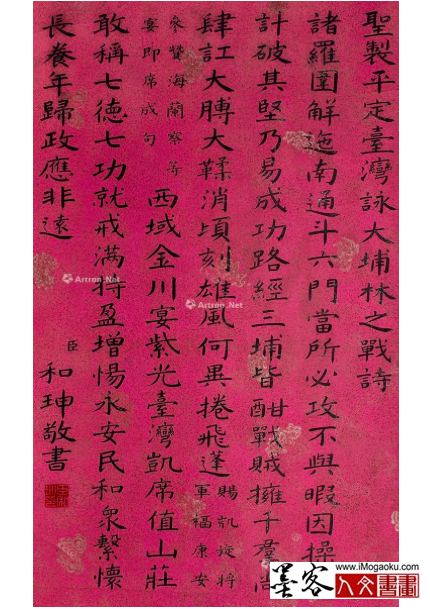 聖製平定臺灣詠大埔林之戰詩
諸羅圍解迤南通斗六門當所必攻不與暇因操
計破其堅乃易成功路經三埔皆酣戰賊擁千羣尚
肆訌大膊大鞣消頃刻雄風何異捲飛蓬
賜凱旋將
軍福康安
參贊海蘭察等
宴即席成句
西域金川宴紫光臺灣凱席值山莊
敢稱七德七功就戒滿持盈增惕永安民和衆繫懷
長養年歸政應非遠
臣和珅敬書
Artron.Net
Artron.Net
www.iMogaoku.com
墨客
人文書畫